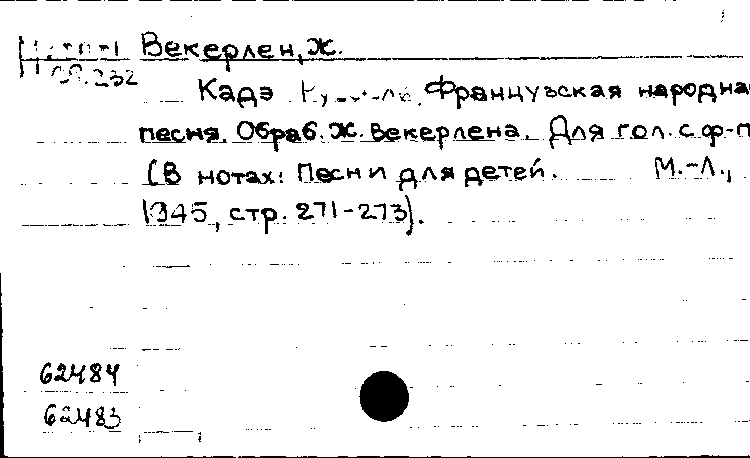 Векерлен, Ж.
Кадэ Французская народна
песня. Обраб. Ж. Векерлена. Для гол. с ф-п
(В нотах: Песни для детей. М.-Л.,
1945, стр. 271-273).
62484
62483